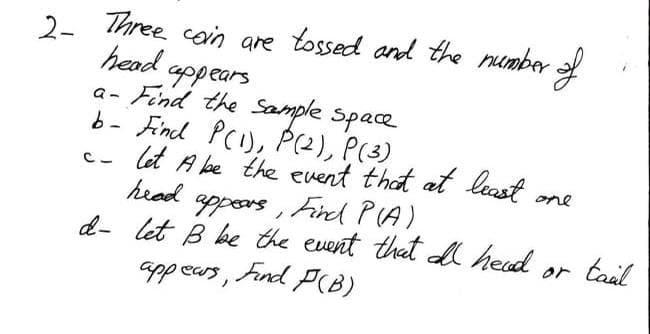 2- Three coin are tossed and the number of
head appears
a- Find the sample space
b- Find P(1), P(2), P(3)
c- let A be the event that at least one
head appears, Find P(A)
d- let B be the event that all head or tail
appears, Find P(B)